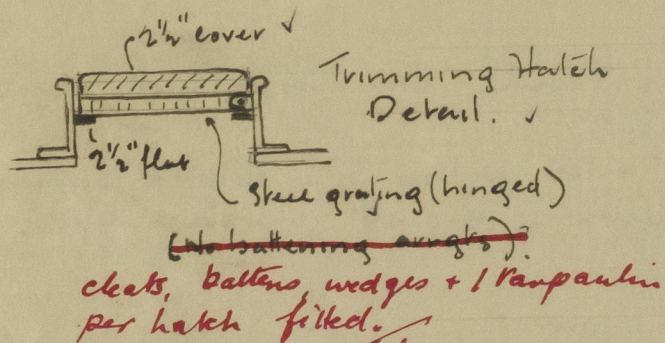 2½" cover ✓
Trimming Hatch
Detail. ✓
2½" flat
Steel grating (hinged)
(No battening arrgts).
cleats, battens, wedges + 1 tarpaulin
per hatch fitted.